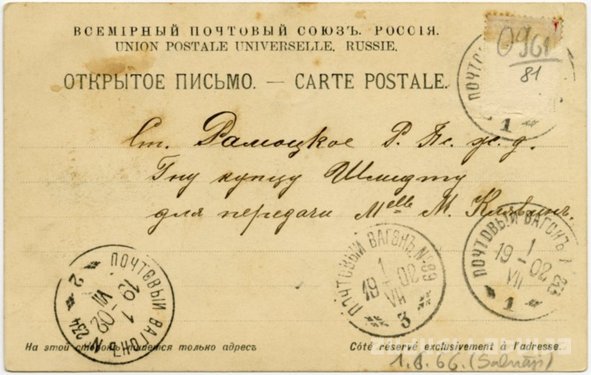 ВСЕМІРНЫЙ ПОЧТОВЫЙ СОЮЗЪ. РОССІЯ.
UNION POSTALE UNIVERSELLE. RUSSIE.
ОТКРЫТОЕ ПИСЬМО. — CARTE POSTALE.
0961
81
ПОЧТОВ
1
Ст. Рамоцкое Р. В. ж. д.
Гну купцу Шмидту
для передачи Melle М.
ПОЧТОВЫЙ ВАГОНЪ N 234
19 1 02
VII
2
ПОЧТОВЫЙ ВАГОНЪ № 89
1
19 02
VII
3
ПОЧТОВЫЙ ВАГОНЪ
1
19 02
VII
1
На этой сторонѣ пишется только адресъ
Côté réservé exclusivement à l'adresse.
1.8.66. (Salnāji)